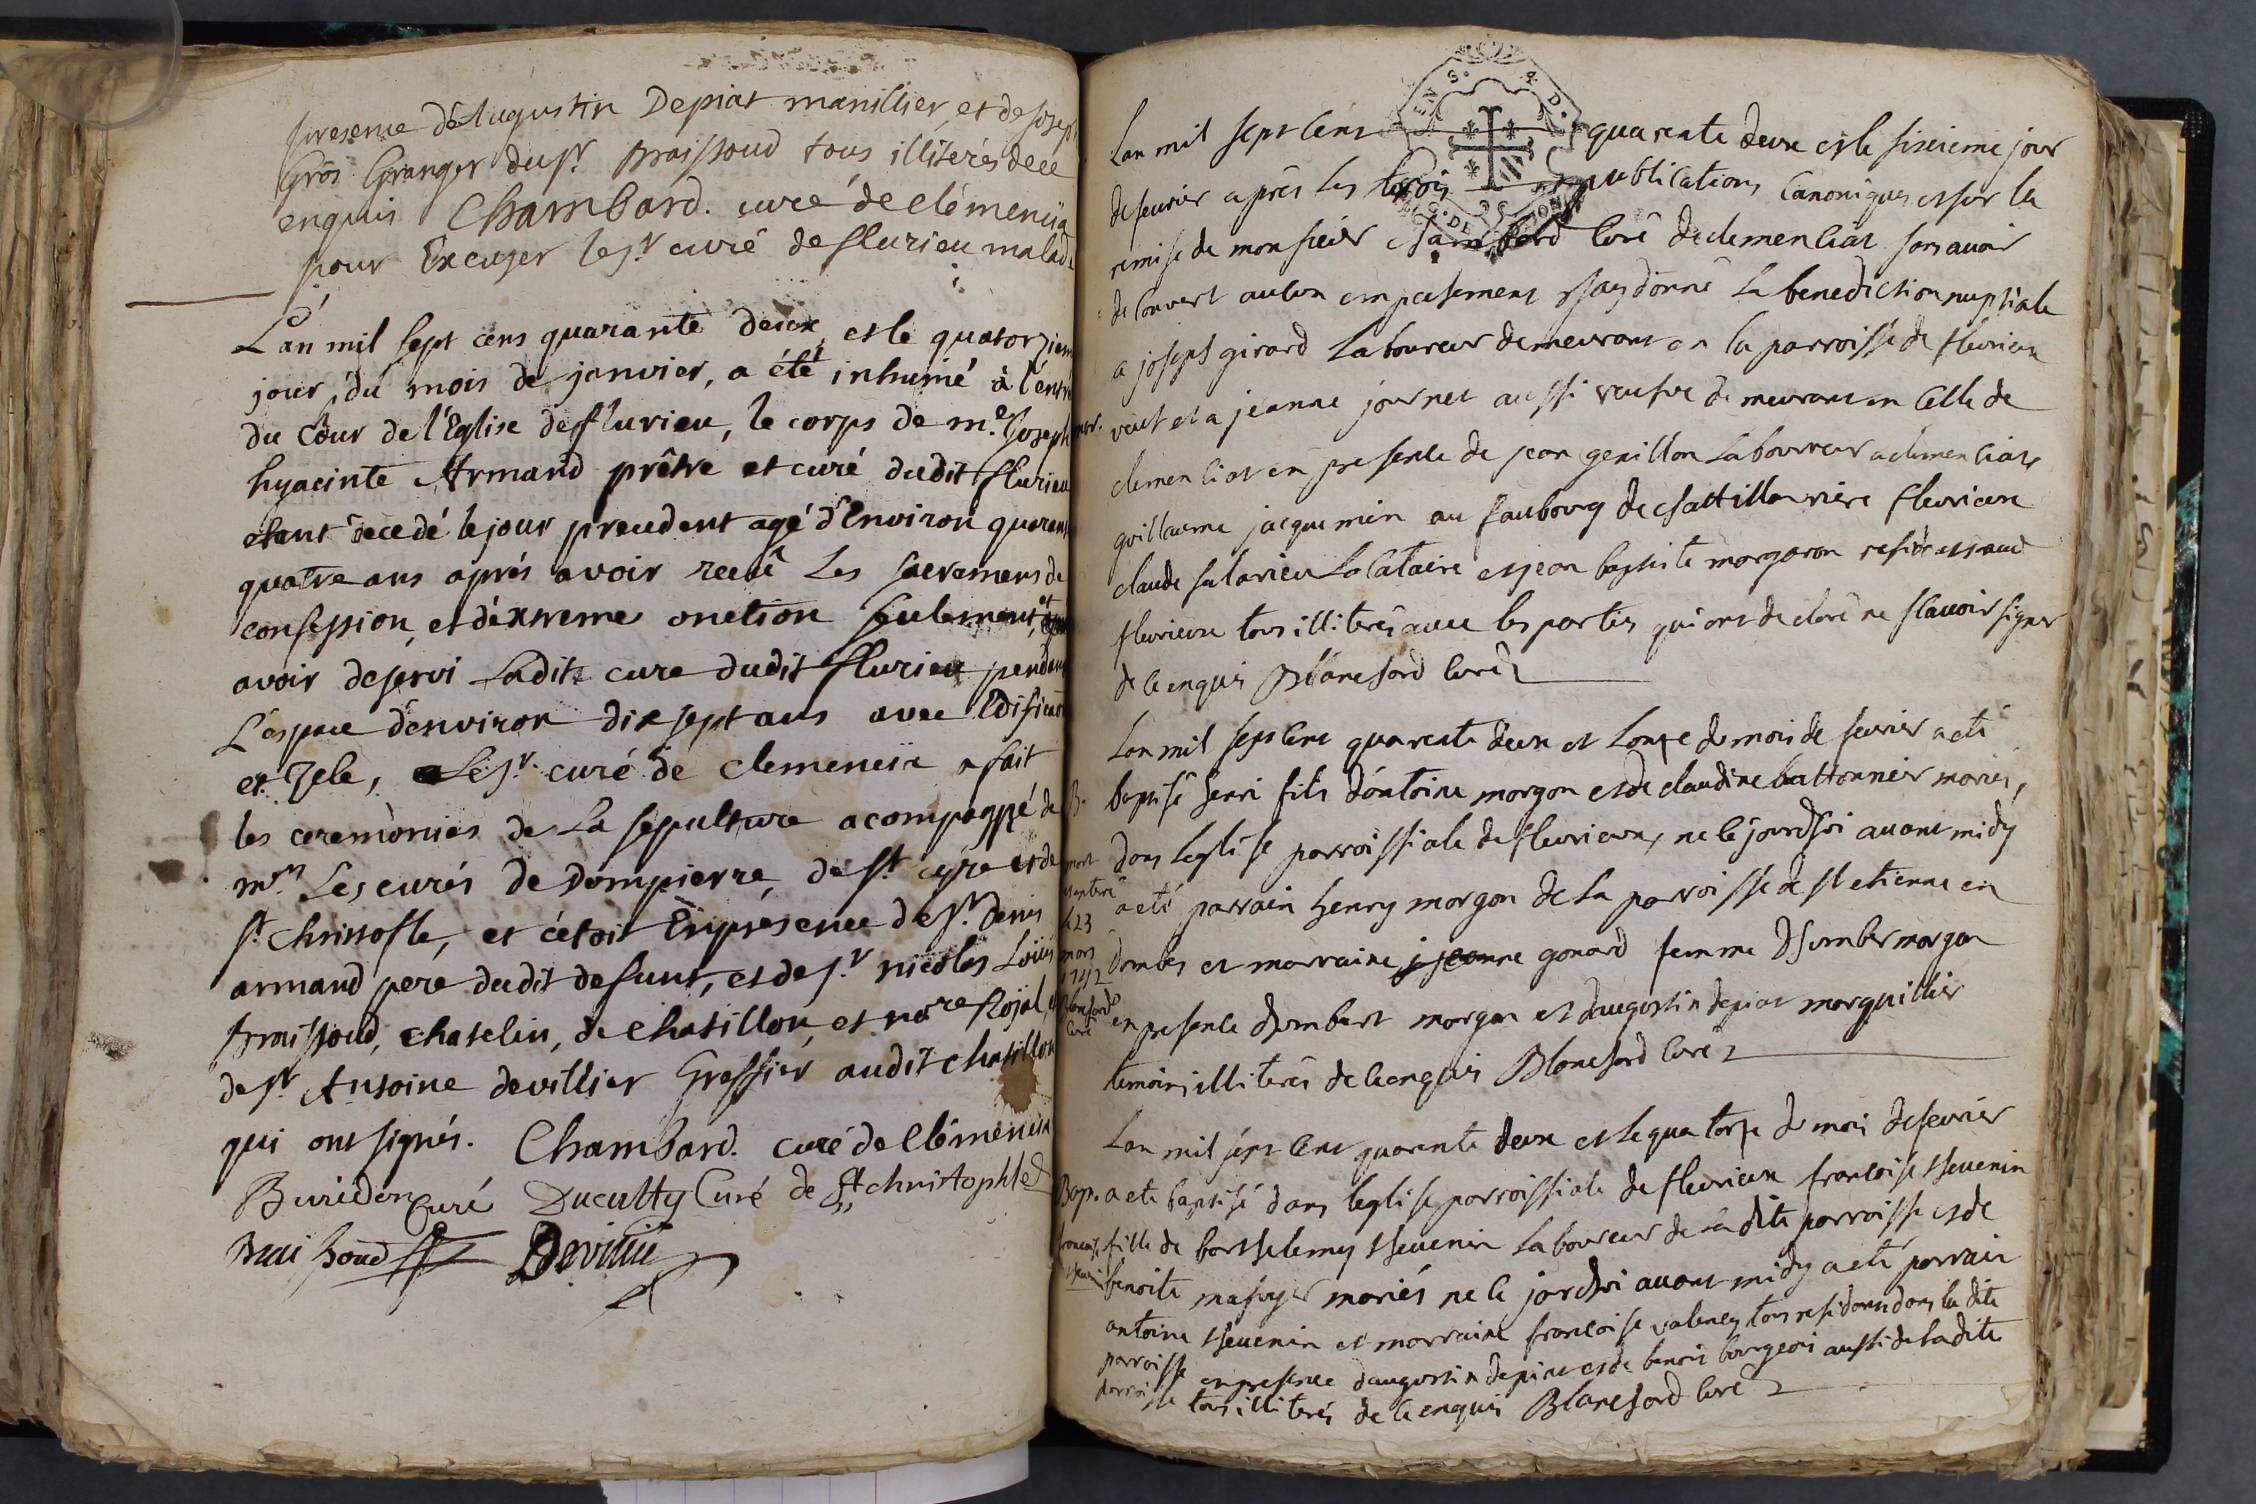 presence d'Augustin Depiat manillier, et de joseph
Gros Granger du sr. Braissoud tous illiterés de ce
enquis Chambard. curé de clémencia
pour Excuser le sr curé de flurieu malade
L'an mil sept cens quarante deux, et le quatorziem
jour, du mois de janvier, a été inhumé à l'entré
du Cour de l'Eglise de flurieu, le corps de me. Joseph
hyacinte Armand prêtre et curé dudit flurieu
etant decedé le jour precedent agé d'Environ quarant
quatre ans aprés avoir receû Les sacremens de
confession, et d'éxtreme onction seulement, et
avoir deservi Ladite cure dudit flurieu pendant
L'espace d'environ dix sept ans avec Edificaon
et Zele, Le sr. curé de clemencia a fait
les ceremonies de La sepulture acompagné de
mrs. Les curés de Dompierre, de st. cyre et de
st. christofle, et c'étoit En présence de sr. denis
armand pere dudit defunt, et de sr. nicolas Loüis
Braissoud, chatelin, de chatillon, et nore. Royal, et
de sr Antoine devillier Greffier audit chatillon
qui ont signés. Chambard. curé de Clémencia
Buridon curé Ducultty Curé de St christophle
Braissoud Devillie
Lan mil sept cens quarante deux et le sixieme jour
de fevrier après les trois publications canoniques et sur la
remise de monsieur chambard curé de clemencias sans avoir
decouvert aucun empechement j'ay donné la benediction nuptiale
a joseph girard laboureur demeurant en la parroisse de fleurieux
mar. veuf et a jeanne journet aussi veufve demeurant en celle de
clemencias en presence de jean genillon laboureur a clemencias
guillaume jacquemin au faubourg de chattillon riere fleurieux
claude salarieu locataire et jean baptiste morgaron residents aud
fleurieux tous illiterés avec les parties qui ont declaré ne sçavoir signer
de ce enquis Blanchard curé
Lan mil sept cent quarente deux et l'onze du mois de fevrier a eté
B. baptisé henri fils d'antoine morgon et de claudine battonnier mariés,
dans leglise parroissiale de fleurieux, ne le jourdhui avant midy
a eté parrain henry morgon de la parroisse de st etienne en
dombes et marraine jeanne gonard femme dhumber morgon
en presence dhumbert morgon et daugustin depiat marguillier
temoins illiterés de ce enquis Blanchard curé
mort
enterré
le 23
mars
1742
Blanchard
curé
Lan mil sept cent quarante deux et le quatorze du mois de fevrier
Bap. a eté baptisé dans leglise parroissiale de fleurieux francoise thevenin
francoise fille de barthelemy thevenin laboureur de la dite parroisse et de
thevenin benoite mafuyer mariés ne le jourdhui avant midy a eté parrain
antoine thevenin et marraine francoise valency tous residants dans la dite
parroisse en presence daugustin depiat et de benoit bourgeois aussi de ladite
parroisse tous illiterés de ce enquis Blanchard curé